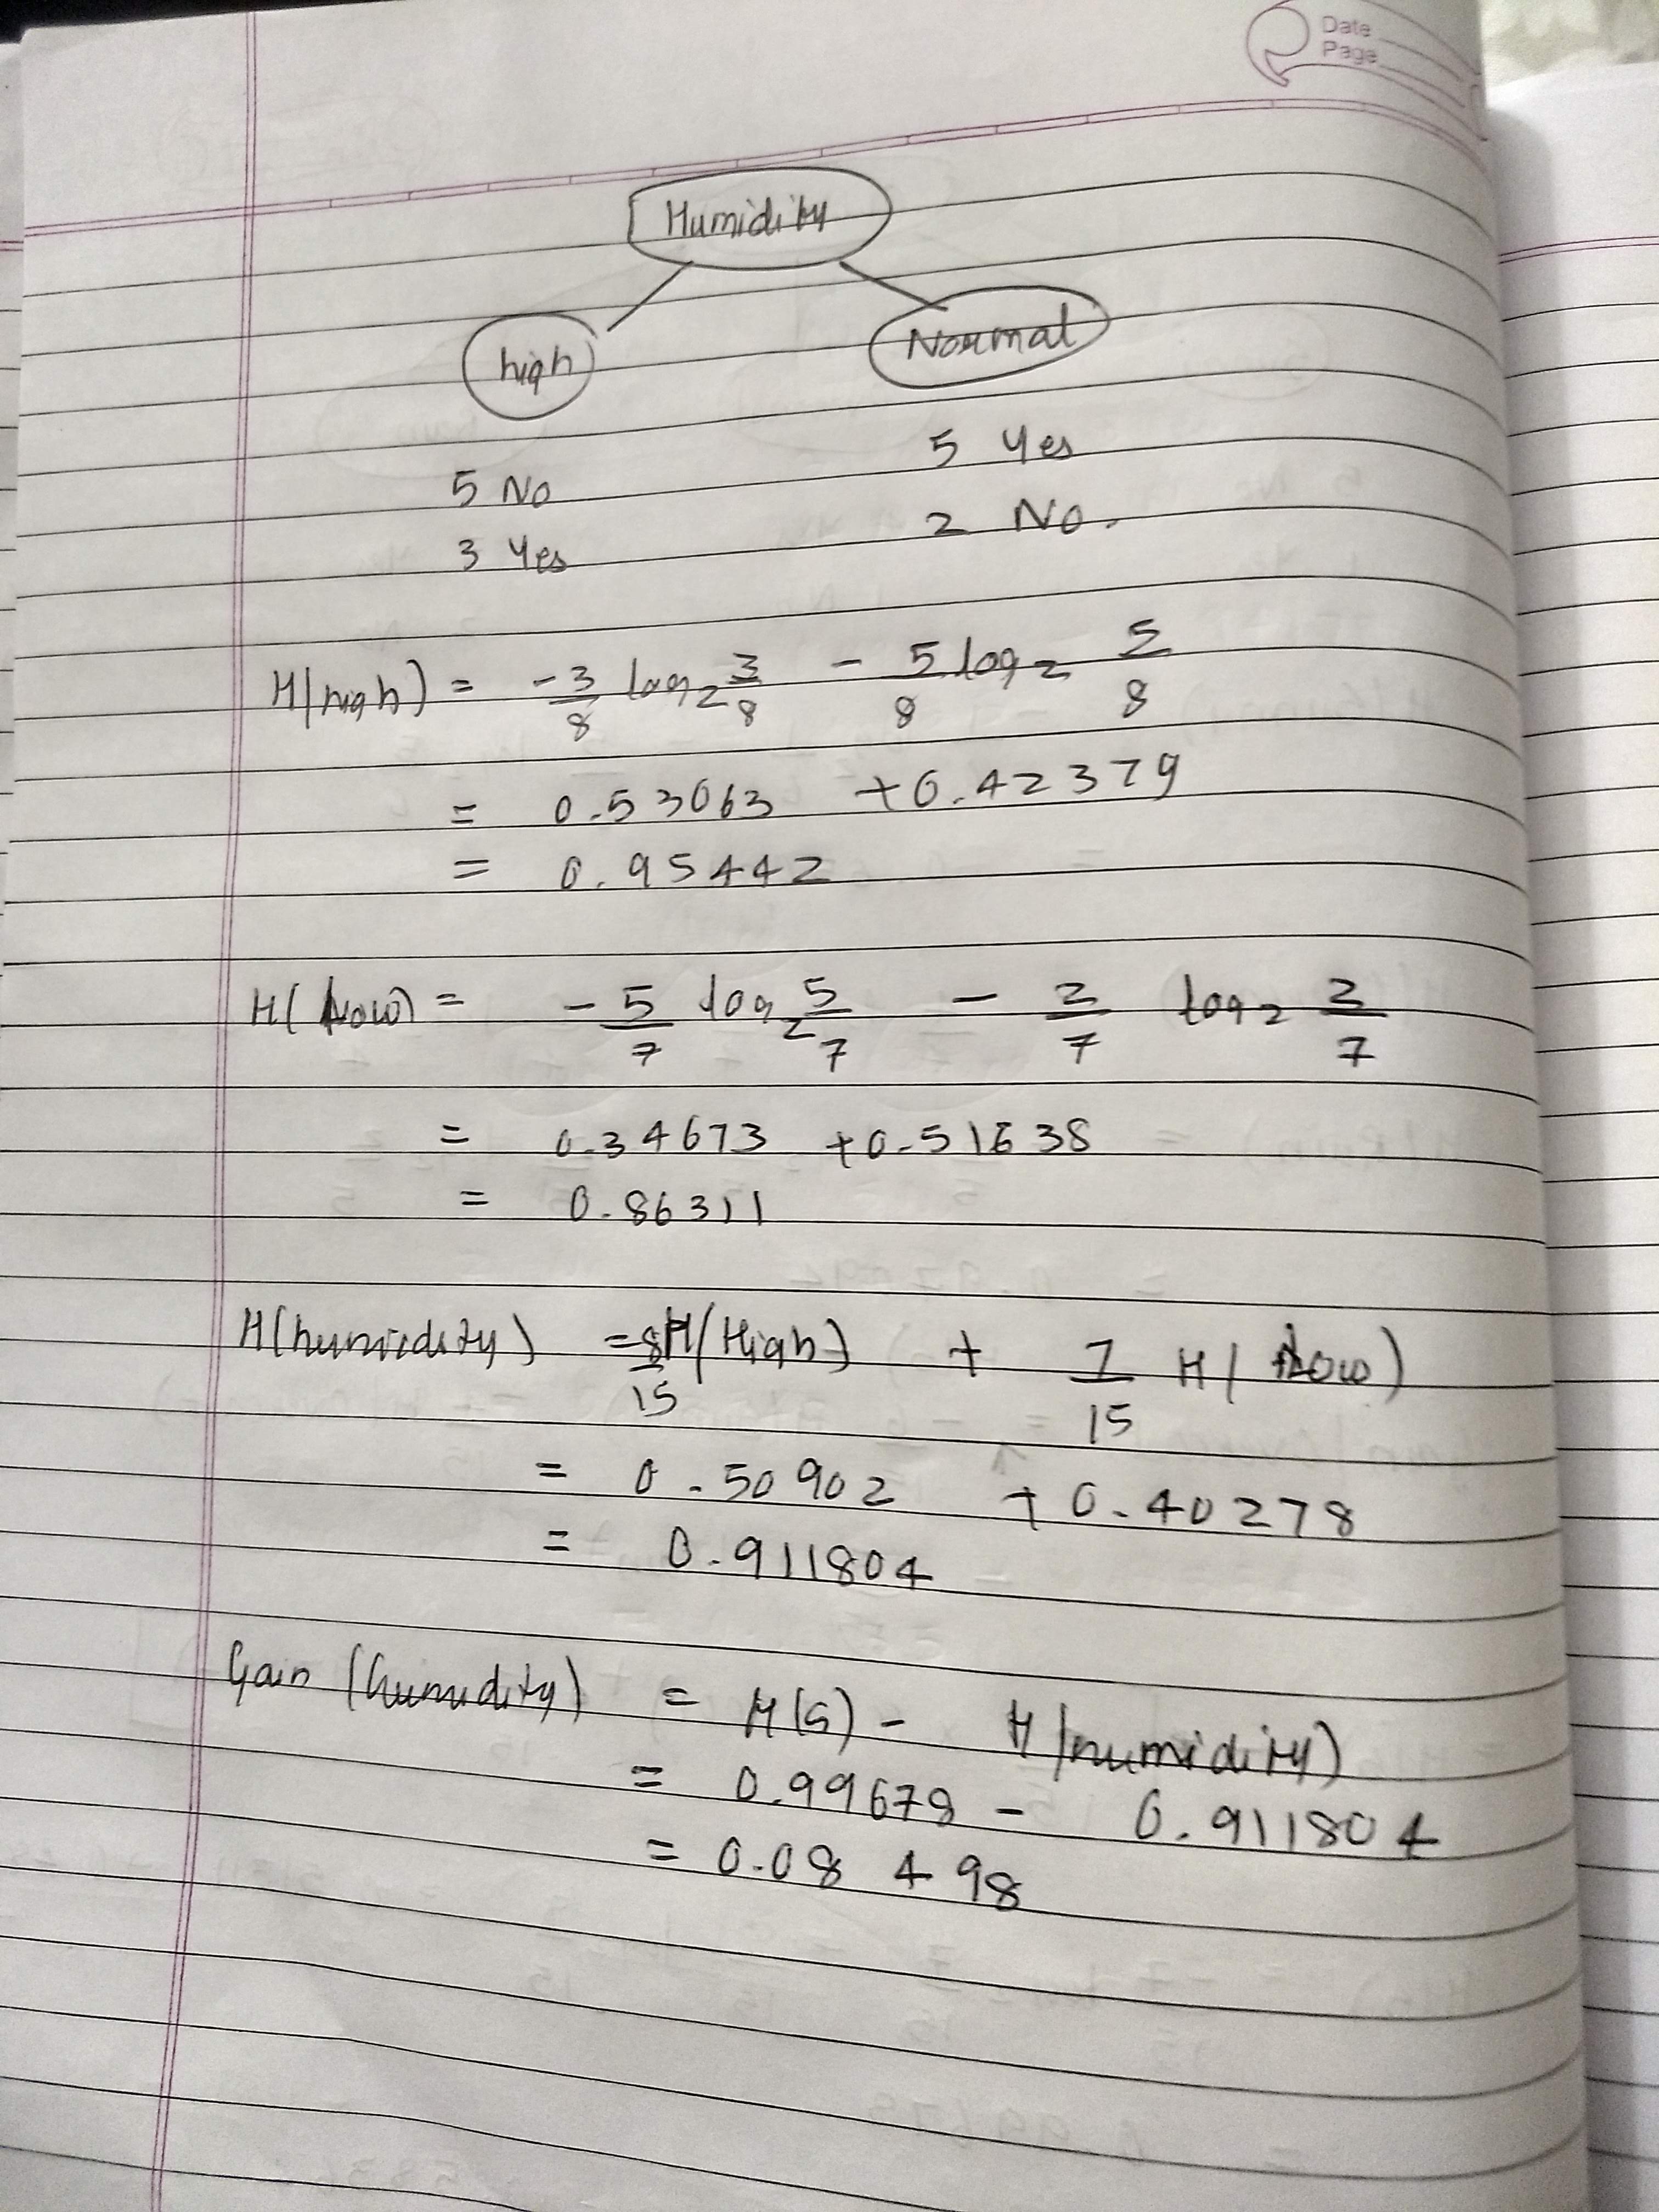 Date
Page
Humidity
high Normal
5 No 5 Yes
3 Yes 2 No.
H(high) = -3/8 log2 3/8 - 5/8 log2 5/8
= 0.53063 + 0.42379
= 0.95442
H(low) = -5/7 log2 5/7 - 2/7 log2 2/7
= 0.34673 + 0.51638
= 0.86311
H(humidity) = 8/15 H(High) + 7/15 H(low)
= 0.50902 + 0.40278
= 0.911804
Gain (humidity) = H(S) - H(humidity)
= 0.99678 - 0.911804
= 0.08 498